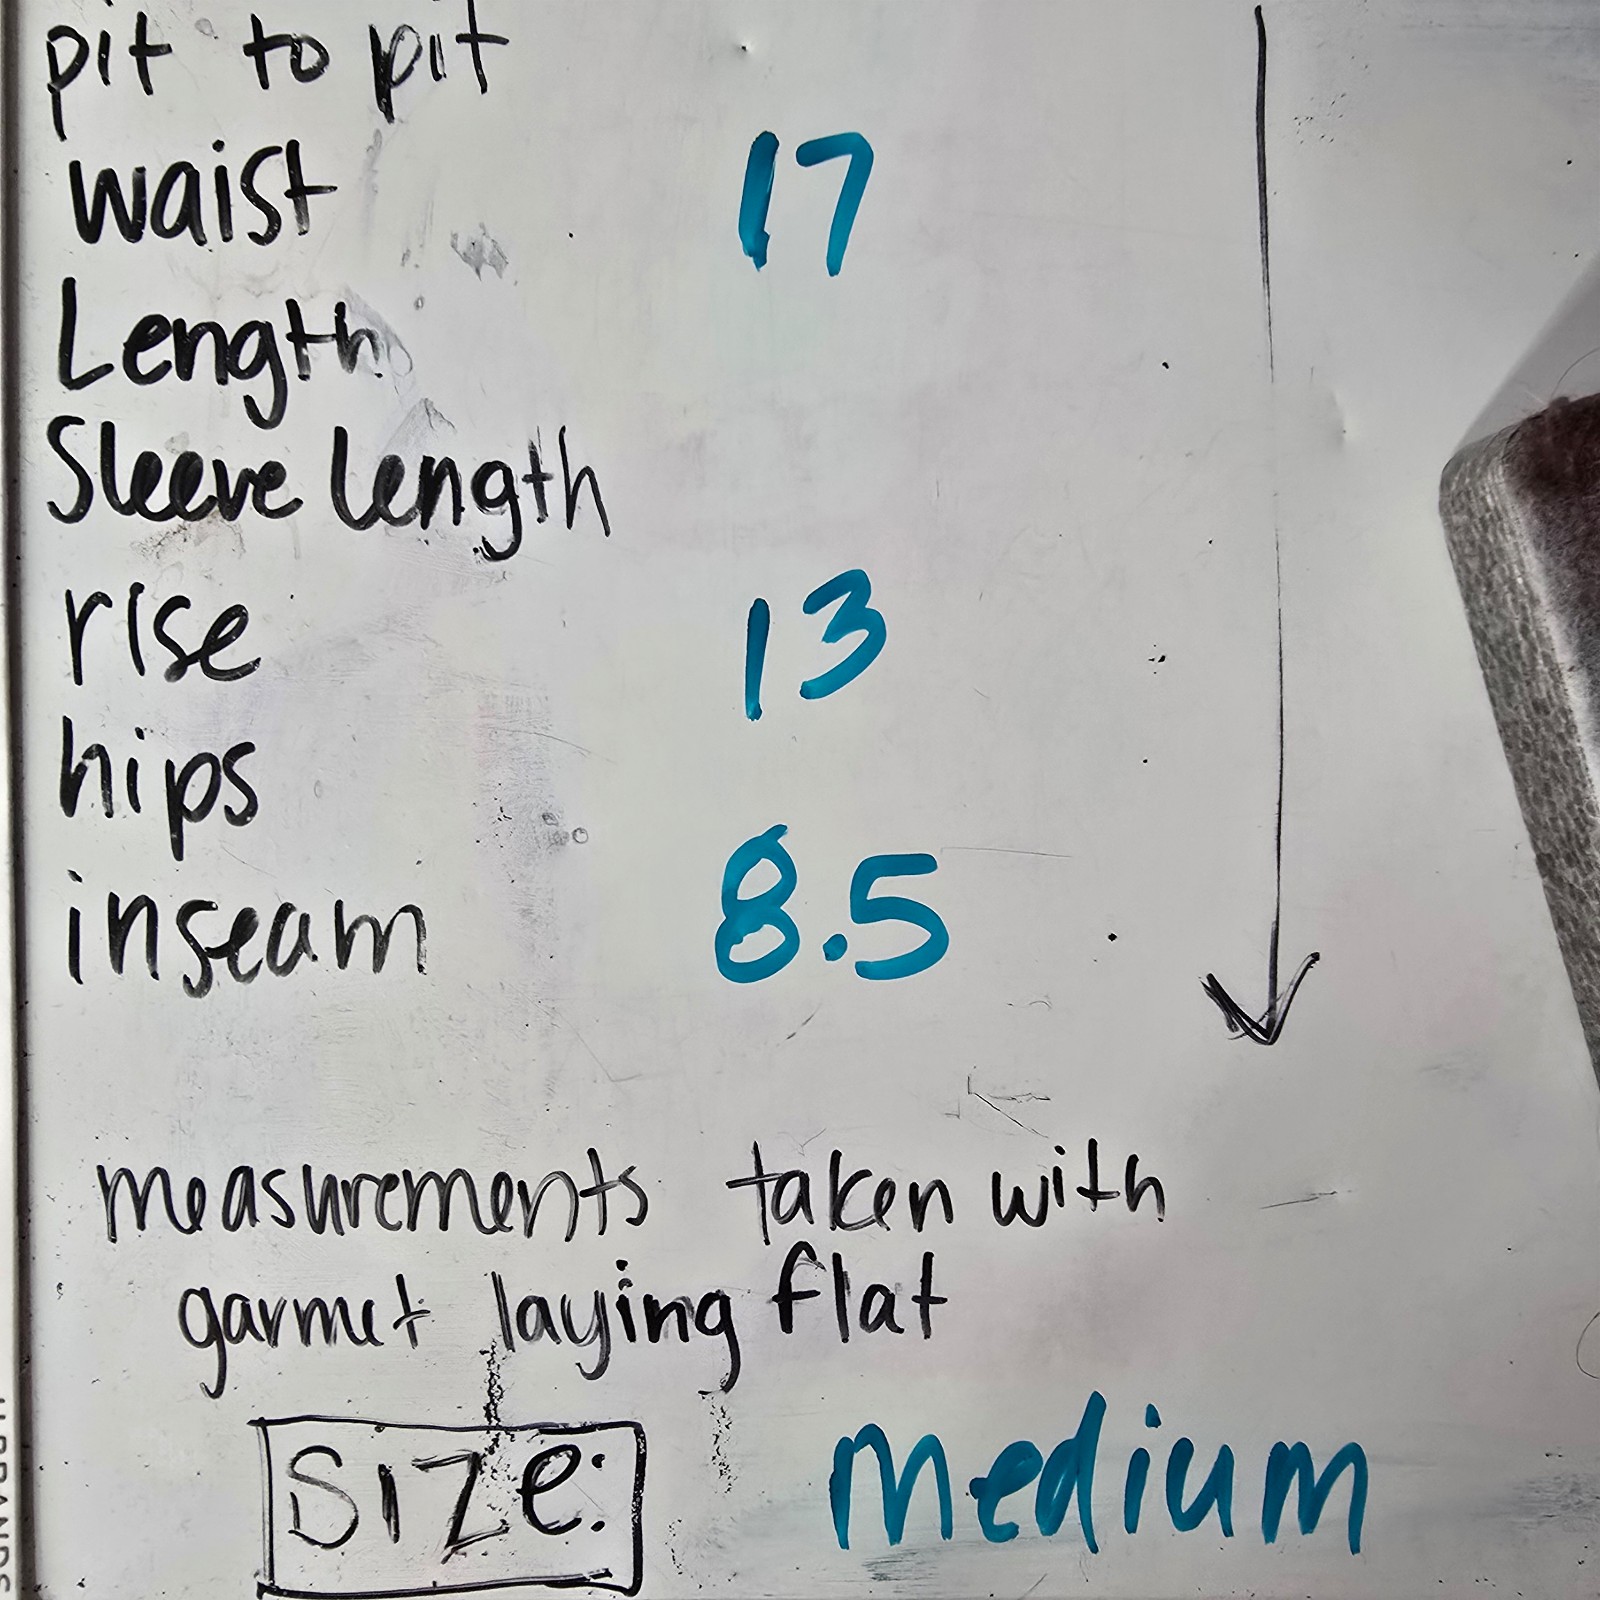 pit to pit
waist 17
Length
Sleeve length
rise 13
hips
inseam 8.5
measurements taken with
garmet laying flat
Size: medium